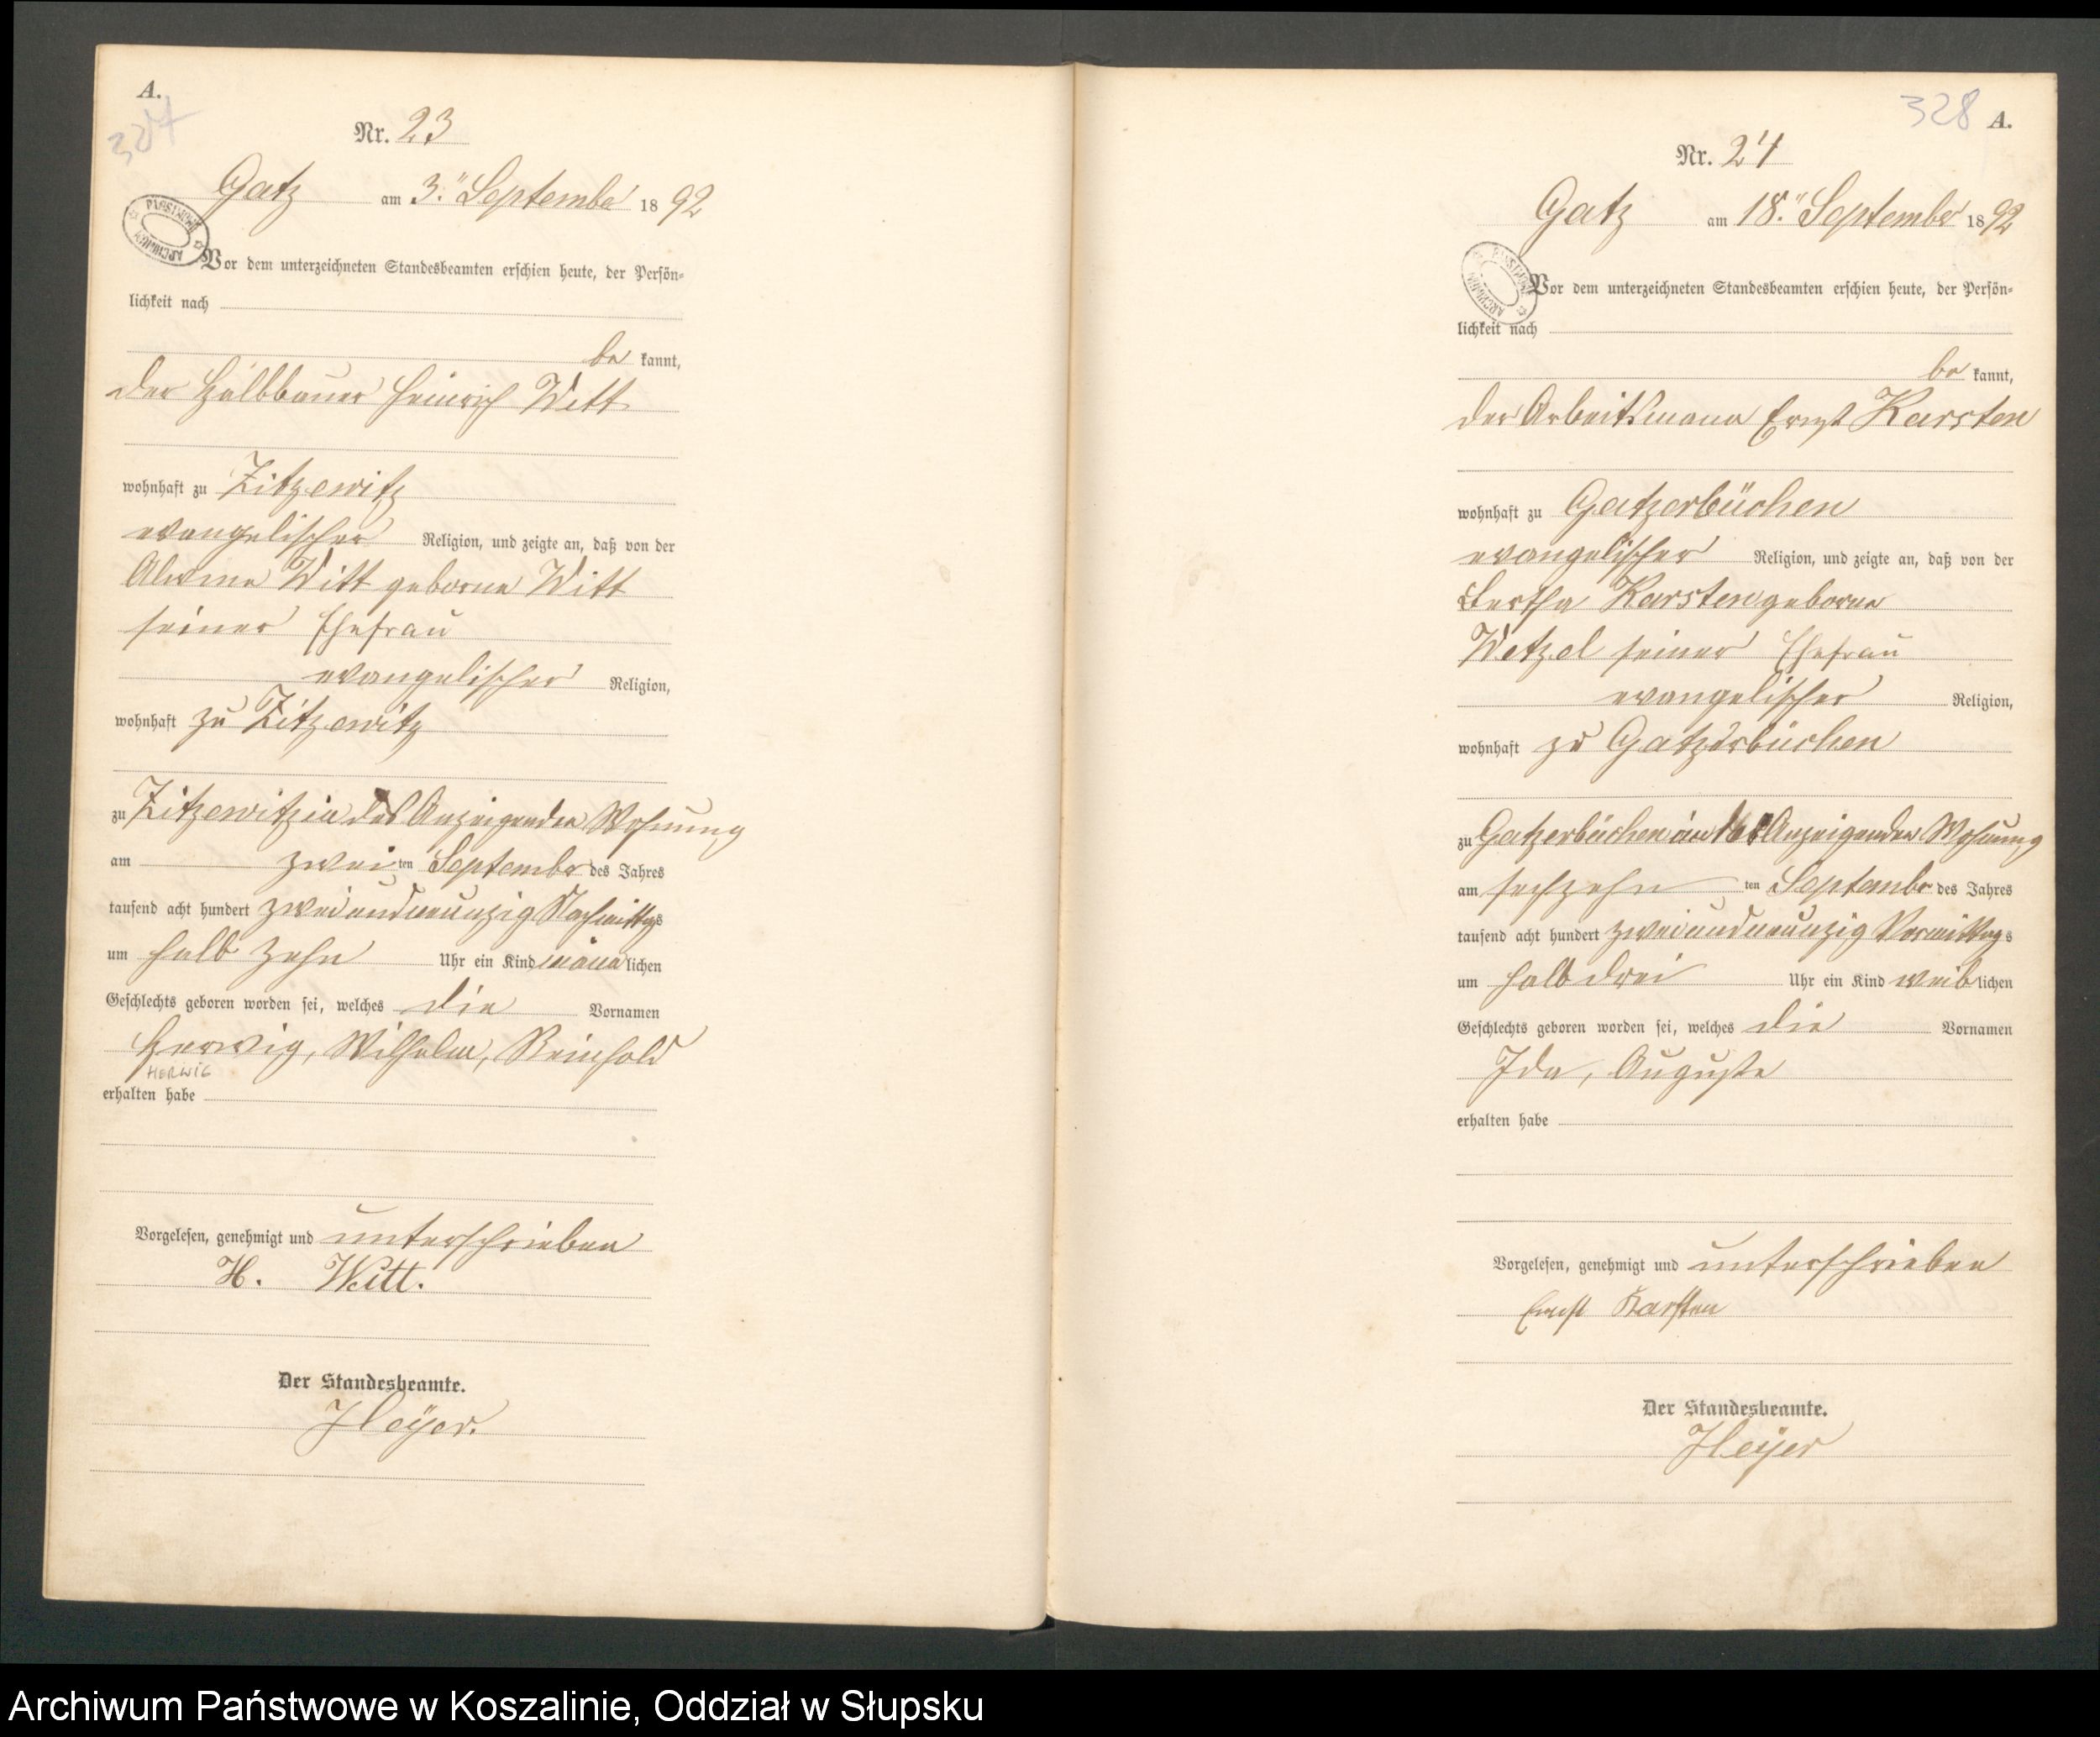 A.
327
Nr. 23
Gatz am 3. September 1892
Vor dem unterzeichneten Standesbeamten erschien heute, der Persön=
lichkeit nach
be kannt,
der Halbbauer Heinrich Witt
wohnhaft zu Zitzewitz
evangelischer Religion, und zeigte an, daß von der
Alwine Witt geborne Witt
seiner Ehefrau
evangelischer Religion,
wohnhaft zu Zitzewitz
zu Zitzewitz in des Anzeigenden Wohnung
am zwei ten September des Jahres
tausend acht hundert zweiundneunzig Nachmittags
um halb zehn Uhr ein Kind männlichen
Geschlechts geboren worden sei, welches die Vornamen
Herwig, Wilhelm, Reinhold
HERWIG
erhalten habe
Vorgelesen, genehmigt und unterschrieben
H. Witt.
Der Standesbeamte.
Heyer.
328 A.
Nr. 24
Gatz am 18. September 1892
Vor dem unterzeichneten Standesbeamten erschien heute, der Persön=
lichkeit nach
be kannt,
der Arbeitsmann Ernst Karsten
wohnhaft zu Gatzerbüchen
evangelischer Religion, und zeigte an, daß von der
Bertha Karsten geborne
Wetzel seiner Ehefrau
evangelischer Religion,
wohnhaft zu Gatzerbüchen
zu Gatzerbüchen in des Anzeigenden Wohnung
am sechzehn ten September des Jahres
tausend acht hundert zweiundneunzig Vormittags
um halb drei Uhr ein Kind weiblichen
Geschlechts geboren worden sei, welches die Vornamen
Ida, Auguste
erhalten habe
Vorgelesen, genehmigt und unterschrieben
Ernst Karsten
Der Standesbeamte.
Heyer
Archiwum Państwowe w Koszalinie, Oddział w Słupsku